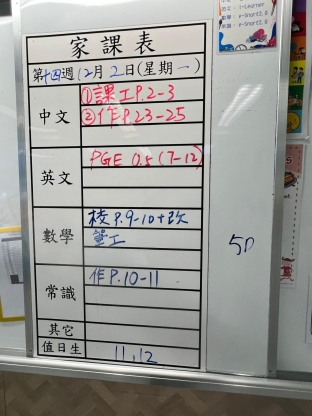 家課表
第十四週 12月2日(星期一)
中文
①課工P.2-3
②作P.23-25
英文
PGE 0.5 (7-12)
數學
校P.9-10+改
常識
作P.10-11
其它
值日生
11, 12
5D
i-Learner